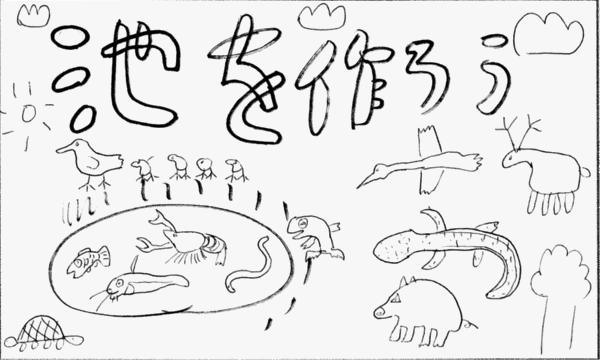 池を作ろう